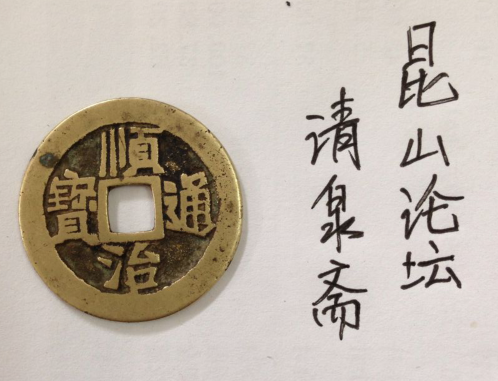 順治通寶
昆山论坛
清泉斋